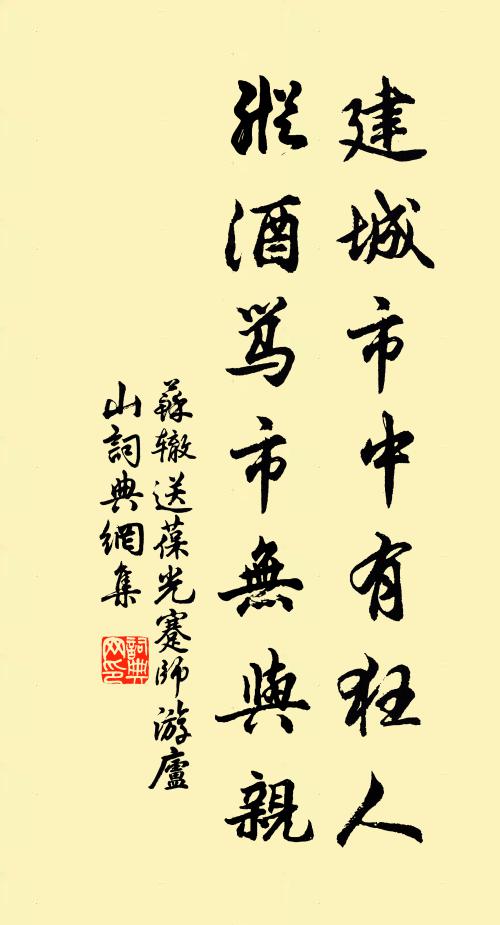 建城市中有狂人
縱酒骂市無與親
蘇辙送葆光蹇師游廬
山詞典網集
詞典网印